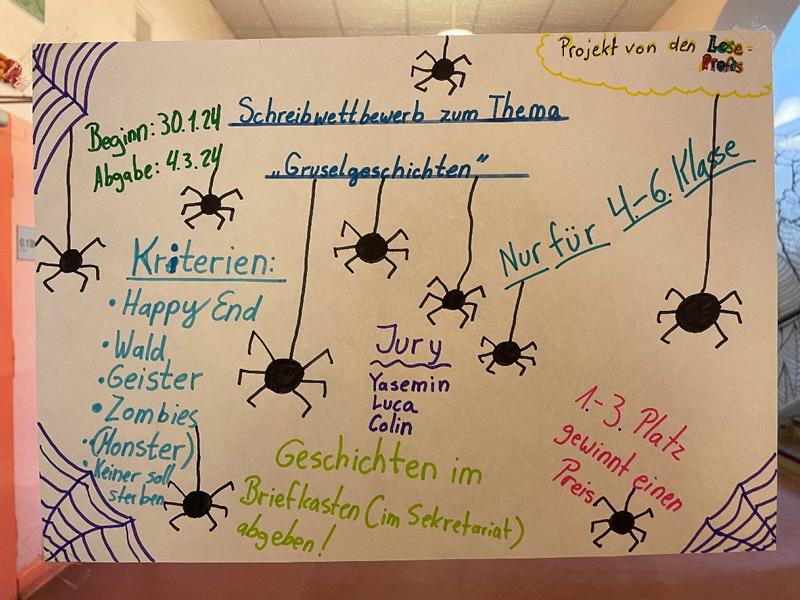 Projekt von den Lese-
Profis
Beginn: 30.1.24
Abgabe: 4.3.24
Schreibwettbewerb zum Thema
„Gruselgeschichten"
Nur für 4.-6. Klasse
Kriterien:
• Happy End
• Wald
• Geister
• Zombies
• (Monster)
• Keiner soll
sterben
Jury
Yasemin
Luca
Colin
1.-3. Platz
gewinnt einen
Preis
Geschichten im
Briefkasten (im Sekretariat)
abgeben!